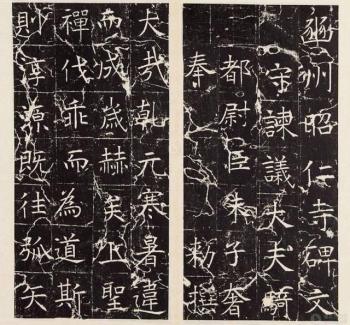 豳州昭仁寺碑文
守諫議大夫騎
都尉臣朱子奢
奉勑撰
大哉乾元寒暑違
而成歲赫矣上聖
禪伐乖而為道斯
眇淳源既往弧矢